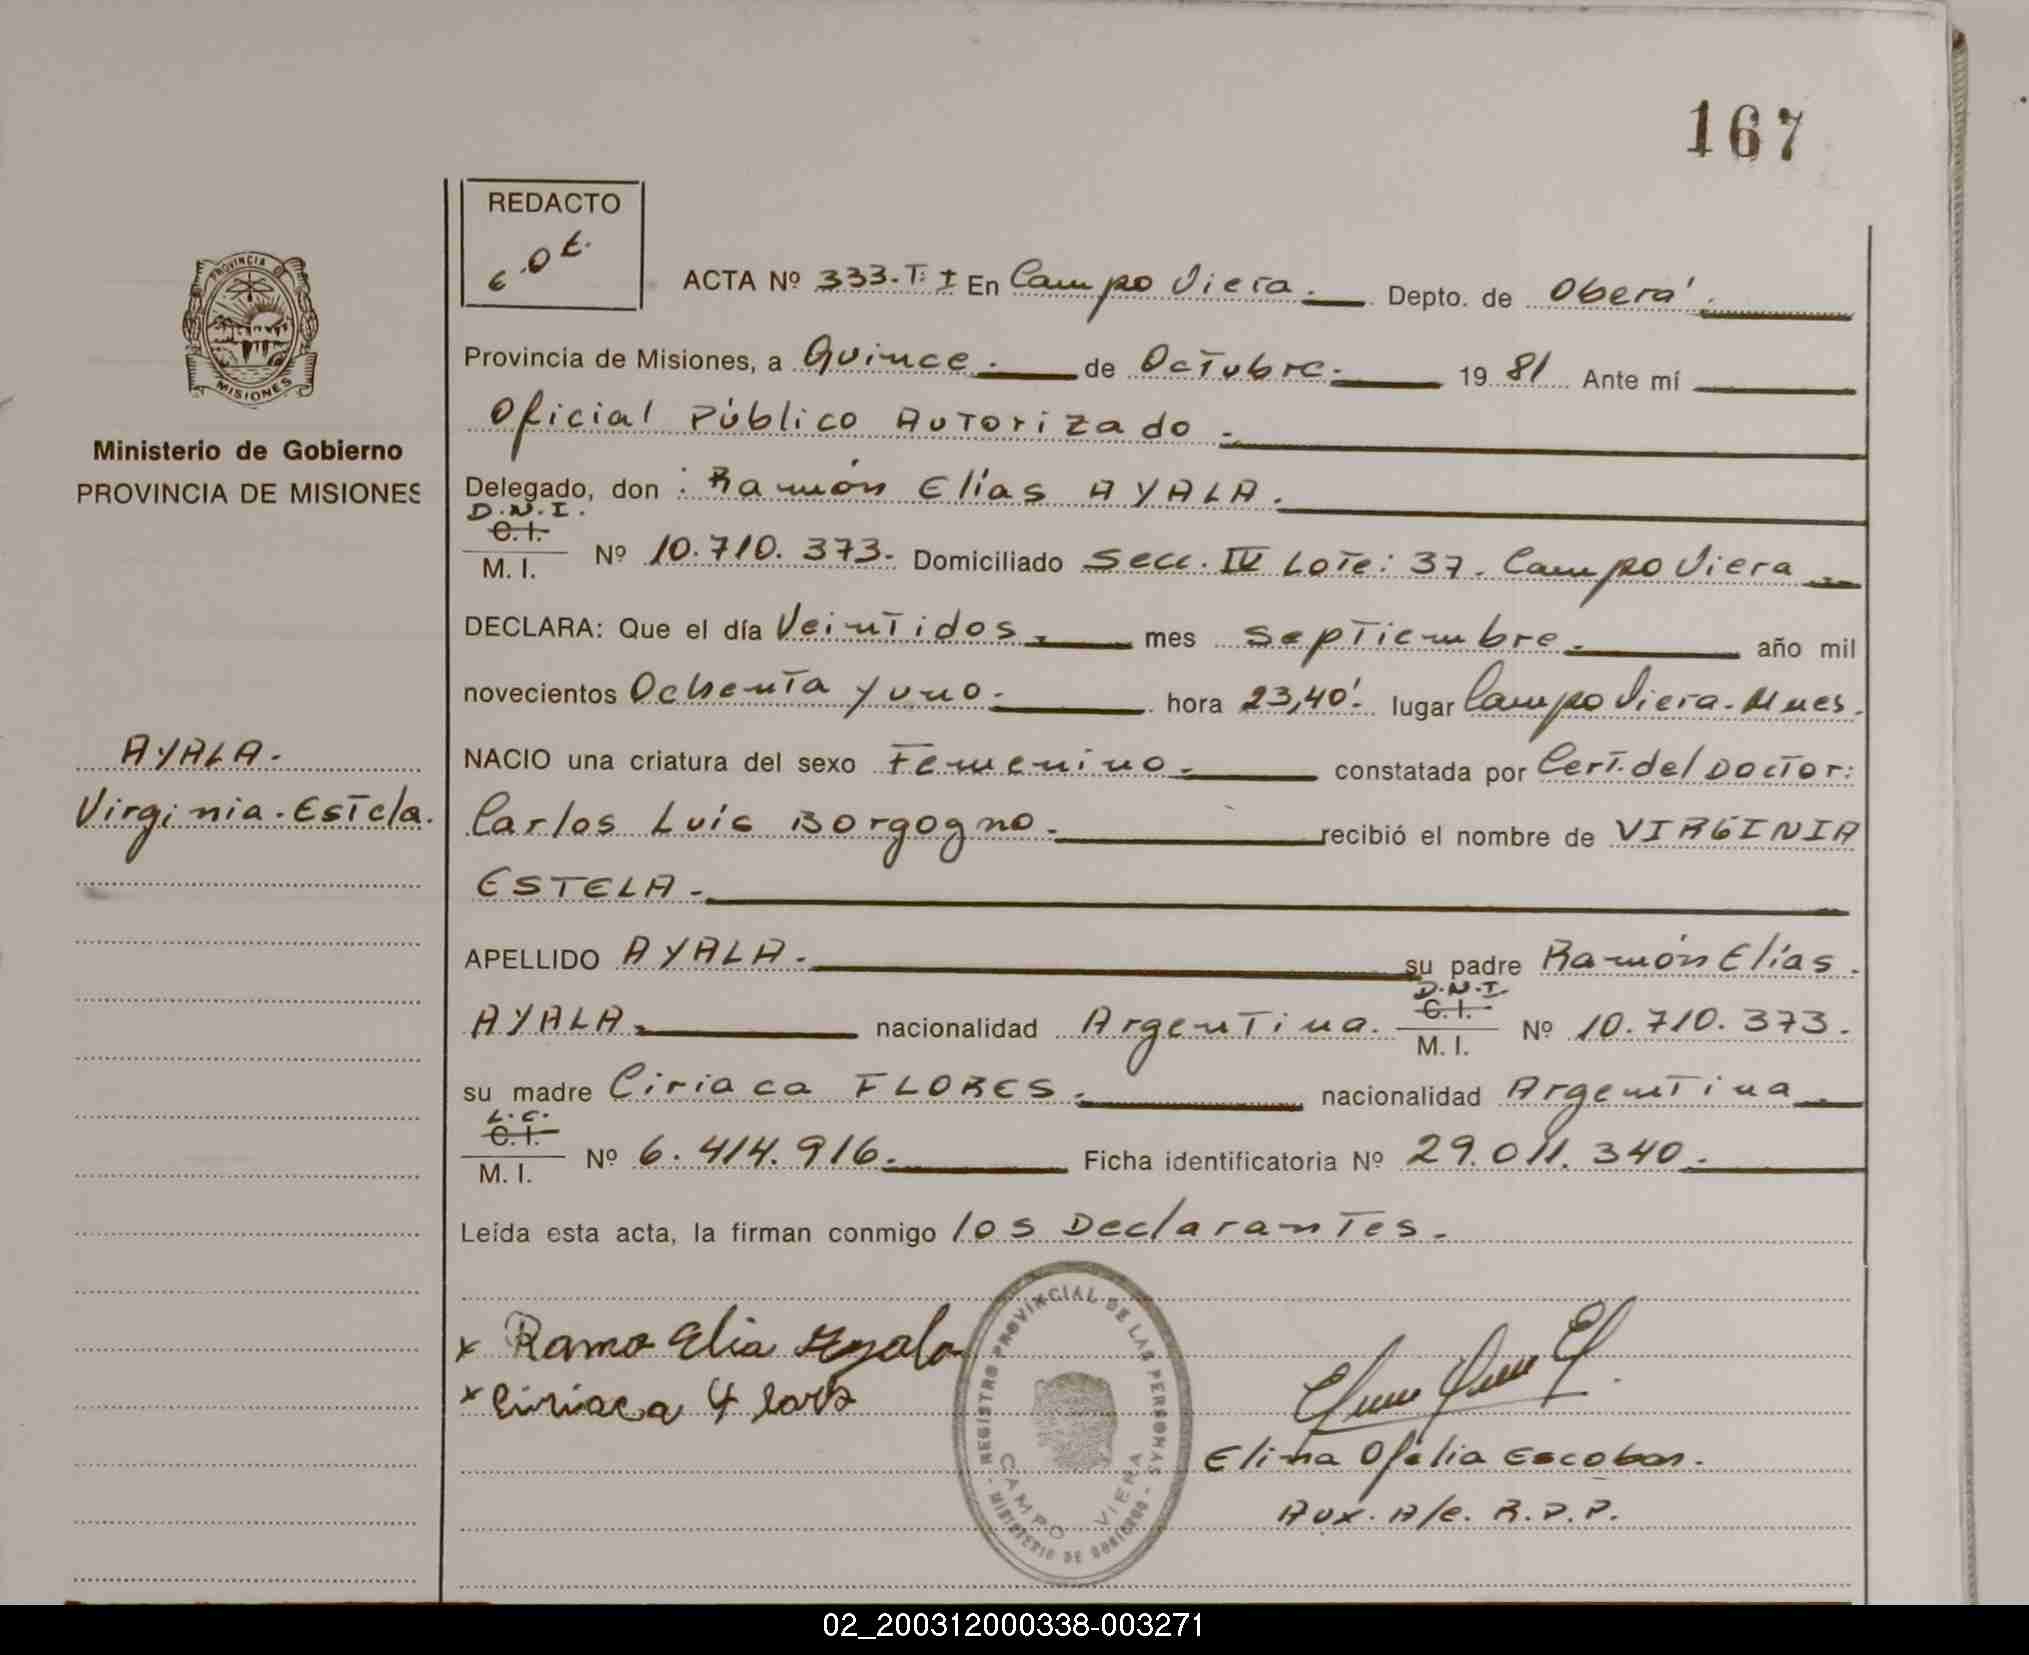 167
REDACTO
e.O.E.
PROVINCIA
MISIONES
Ministerio de Gobierno
PROVINCIA DE MISIONES
AYALA.
Virginia. Estela.
ACTA Nº 333. T: I En Campo Viera. Depto. de Oberá.
Provincia de Misiones, a Quince. de Octubre. 19 81 Ante mí
Oficial Público Autorizado.
Delegado, don : Ramón Elías AYALA.
D.N.I.
C.I.
M. I. Nº 10.710.373. Domiciliado Secc. IV Lote: 37. Campo Viera
DECLARA: Que el día Veintidos. mes septiembre. año mil
novecientos Ochenta y uno. hora 23,40'. lugar Campo Viera. Mnes.
NACIO una criatura del sexo Femenino. constatada por Cert. del Doctor:
Carlos Luis Borgogno. recibió el nombre de VIRGINIA
ESTELA.
APELLIDO AYALA. su padre Ramón Elías.
D.N.I.
C.I.
AYALA. nacionalidad Argentina. M. I. Nº 10.710.373.
su madre Ciriaca FLORES. nacionalidad Argentina
L.C.
C.I.
M. I. Nº 6.414.916. Ficha identificatoria Nº 29.011.340.
Leída esta acta, la firman conmigo los Declarantes.
x Ramo Elia Ayala
x Ciriaca Flores
REGISTRO PROVINCIAL DE LAS PERSONAS
CAMPO VIERA
MINISTERIO DE GOBIERNO
Elina Ofelia Escobar.
Aux. A/c. R.P.P.
02_200312000338-003271